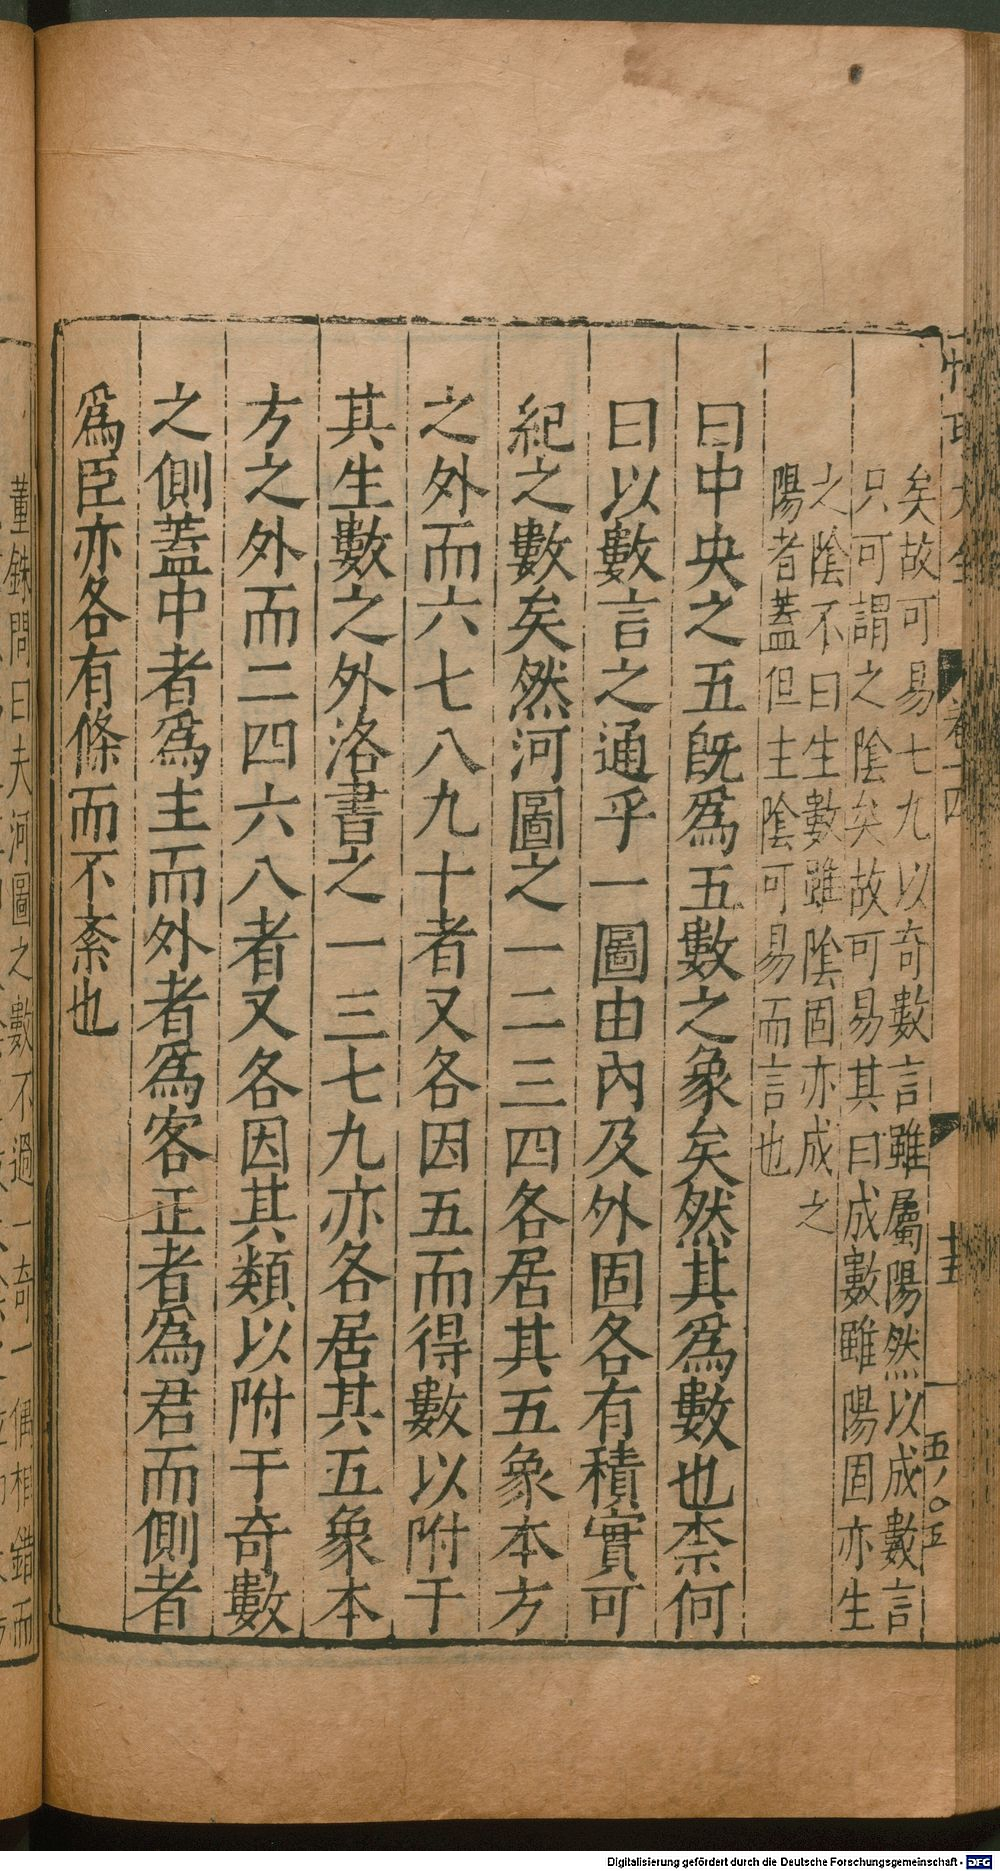 矣故可易七九以奇數言雖屬陽然以成數言
只可謂之陰矣故可易其曰成數雖陽固亦生
之陰不曰生數雖陰固亦成之
陽者蓋但主陰可易而言也
曰中央之五旣爲五數之象矣然其爲數也柰何
曰以數言之通乎一圖由內及外固各有積實可
紀之數矣然河圖之一二三四各居其五象本方
之外而六七八九十者又各因五而得數以附于
其生數之外洛書之一三七九亦各居其五象本
方之外而二四六八者又各因其類以附于奇數
之側蓋中者爲主而外者爲客正者爲君而側者
爲臣亦各有條而不紊也
卷十四
十五
五八〇五
董銖問曰夫河圖之數不過一奇一偶相錯而
Digitalisierung gefördert durch die Deutsche Forschungsgemeinschaft - DFG